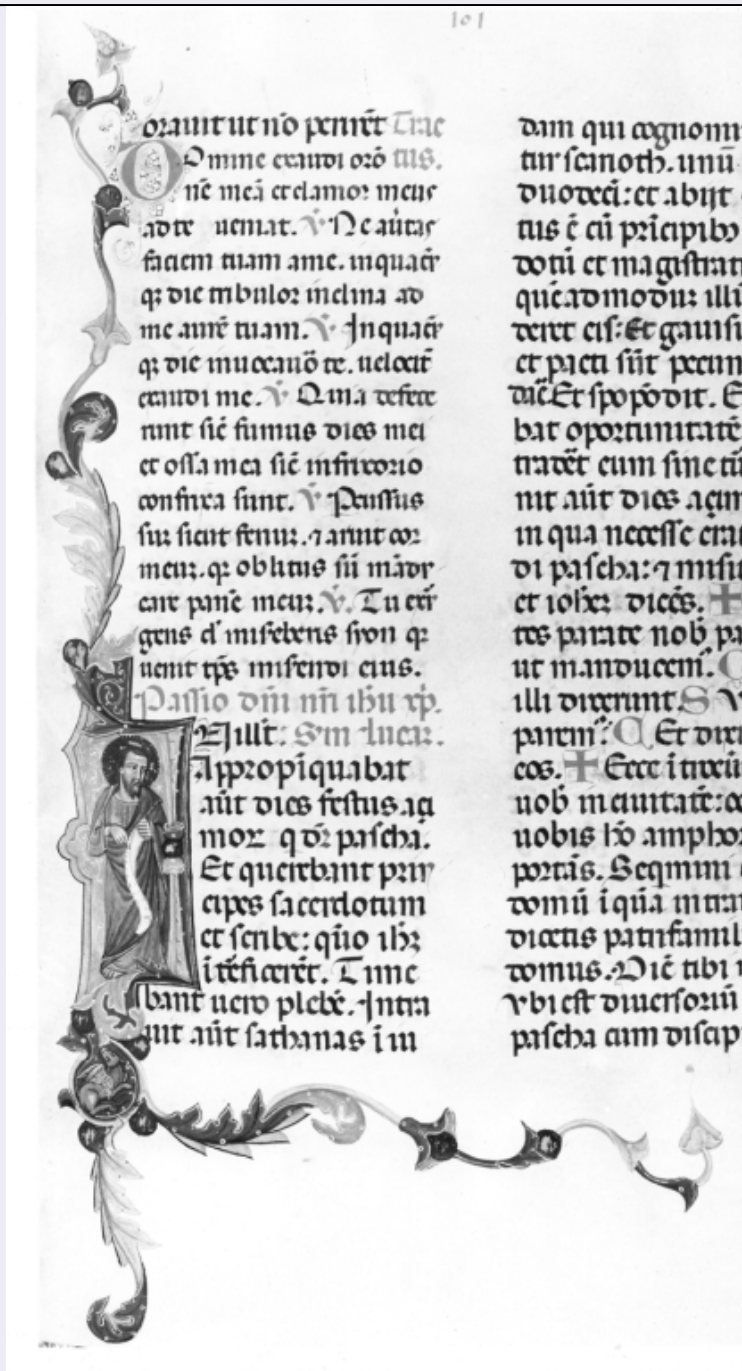 101
orauit ut nō periret Trac
Omine exaudi orō tus.
nē meā et clamor meus
ad te ueniat. V Ne auertas
faciem tuam a me. in quacū
q; die tribulor inclina ad
me aurē tuam. V In quacū
q; die inuocauō te. uelocit
exaudi me. V Quia defece
runt sic̄ fumus dies mei
et ossa mea sic̄ in frixorio
confrixa sunt. V Percussus
sum sicut fenum. 7 aruit cor
meum. q; oblitus sū mādu
care panē meum. V. Tu exur
gens dn̄ misereberis syon q;
uenit tp̄s miserendi eius.
Passio dn̄i nr̄i ihu xp̄.
In illo t. Sm lucam.
Appropīquabat
aūt dies festus açi
mor q dr̄ pascha.
Et querebant prin
cipes sacerdotum
et scribe: quō ihz
īterficerēt. Time
bant uero plebē. Intra
uit aūt sathanas ī iu
dam qui cognomi
tur scarioth. unū
duodeci: et abijt
tus ē cū prīcipib;
dotū et magistrat
quēadmoduz illū
deret eis: Et gauisi
et pacti sūt pecun
daē Et spopōdit. E
bat oportunitatē
traderēt eum sine tu
nit aūt dies açim
in qua necesse erat
di pascha: 7 misit
et iohez dicēs. ✝
tes parate nob pa
ut manducem. C
illi dixerunt S V
parem? C Et dixi
eos. ✝ Ecce ītroeū
uob in ciuitatē: oc
nobis hō amphor
portās. Seqmini
domū ī quā intra
dicetis patrifamil
domus. Dic̄ tibi
vbi est diuersoriū
pascha cum discip